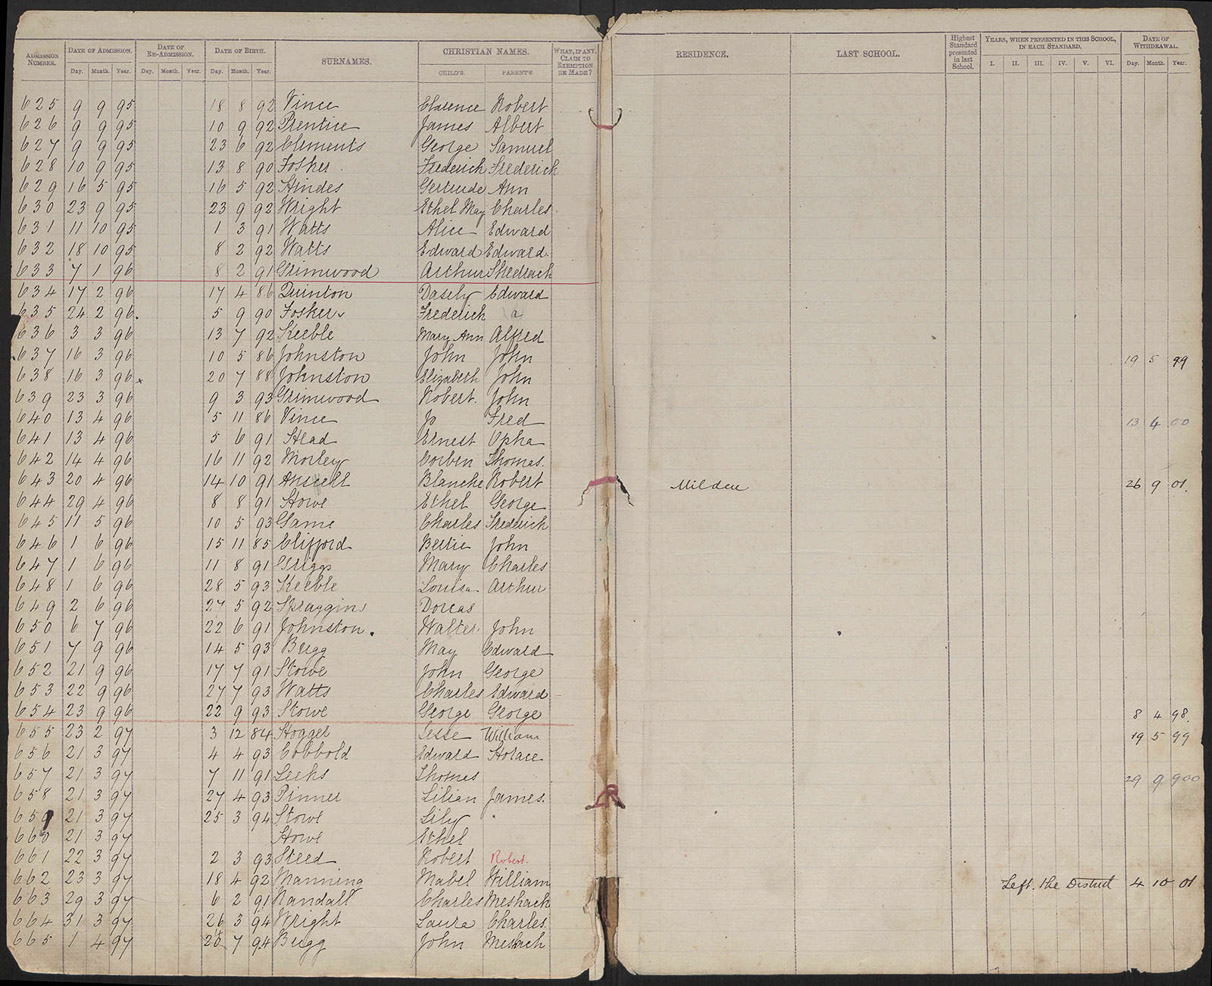 ADMISSION NUMBER. DATE OF ADMISSION. DATE OF RE-ADMISSION. DATE OF BIRTH. SURNAMES. CHRISTIAN NAMES. WHAT, IF ANY, CLAIM TO EXEMPTION BE MADE? RESIDENCE. LAST SCHOOL. Highest Standard presented in last School. YEARS, WHEN PRESENTED IN THIS SCHOOL, IN EACH STANDARD. DATE OF WITHDRAWAL.
Day. Month. Year. Day. Month. Year. Day. Month. Year. CHILD'S. PARENT'S. I. II. III. IV. V. VI. Day. Month. Year.
625 9 9 95 18 8 92 Vince Clarence Robert
626 9 9 95 10 9 92 Prentice James Albert
627 9 9 95 23 6 92 Clements George Samuel
628 10 9 95 13 8 90 Fosker Frederick Frederick
629 16 5 95 16 5 92 Hindes Gertrude Ann
630 23 9 95 23 9 92 Wright Ethel May Charles
631 11 10 95 1 3 91 Watts Alice Edward
632 18 10 95 8 2 92 Watts Edward Edward
633 7 1 96 8 2 91 Grimwood Arthur Shedrach
634 17 2 96 17 4 86 Quinton Edward
635 24 2 96 5 9 90 Fosker Frederick a
636 3 3 96 13 7 92 Keeble Mary Ann Alfred
637 16 3 96 10 5 86 Johnston John John 19 5 99
638 16 3 96 x 20 7 88 Johnston Elizabeth John
639 23 3 96 9 3 93 Grimwood Robert John
640 13 4 96 5 11 86 Vince Jo Fred 13 4 00
641 13 4 96 5 6 91 Head Ernest Opha
642 14 4 96 16 11 92 Morley Corben Thomas
643 20 4 96 14 10 91 Ansell Blanche Robert Milden 26 9 01.
644 29 4 96 8 8 91 Stowe Ethel George
645 11 5 96 10 5 93 Game Charles Frederick
646 1 6 96 15 11 85 Clifford Bertie John
647 1 6 96 11 8 91 Griggs Mary Charles
648 1 6 96 28 5 93 Keeble Louisa Arthur
649 2 6 96 27 5 92 Spraggins Dorcas
650 6 7 96 22 6 91 Johnston. Walter John
651 7 9 96 14 5 93 Bugg May Edward
652 21 9 96 17 7 91 Stowe John George
653 22 9 96 27 7 93 Watts Charles Edward
654 23 9 96 22 9 93 Stowe George George 8 4 98.
655 23 2 97 3 12 84 Hogger Jesse William 19 5 99
656 21 3 97 4 4 93 Cobbold Edward Horace
657 21 3 97 7 11 91 Leeks Thomas 29 9 900
658 21 3 97 27 4 93 Pinner Lilian James.
659 21 3 97 25 3 94 Stowe Lily
660 21 3 97 Stowe Ethel
661 22 3 97 2 3 93 Steed Robert Robert.
662 23 3 97 18 4 92 Manning Mabel William Left the District 4 10 01
663 29 3 97 6 2 91 Randall Charles Meshach
664 31 3 97 26 3 94 Wright Laura Charles
665 1 4 97 7 94 Bugg John Meshach